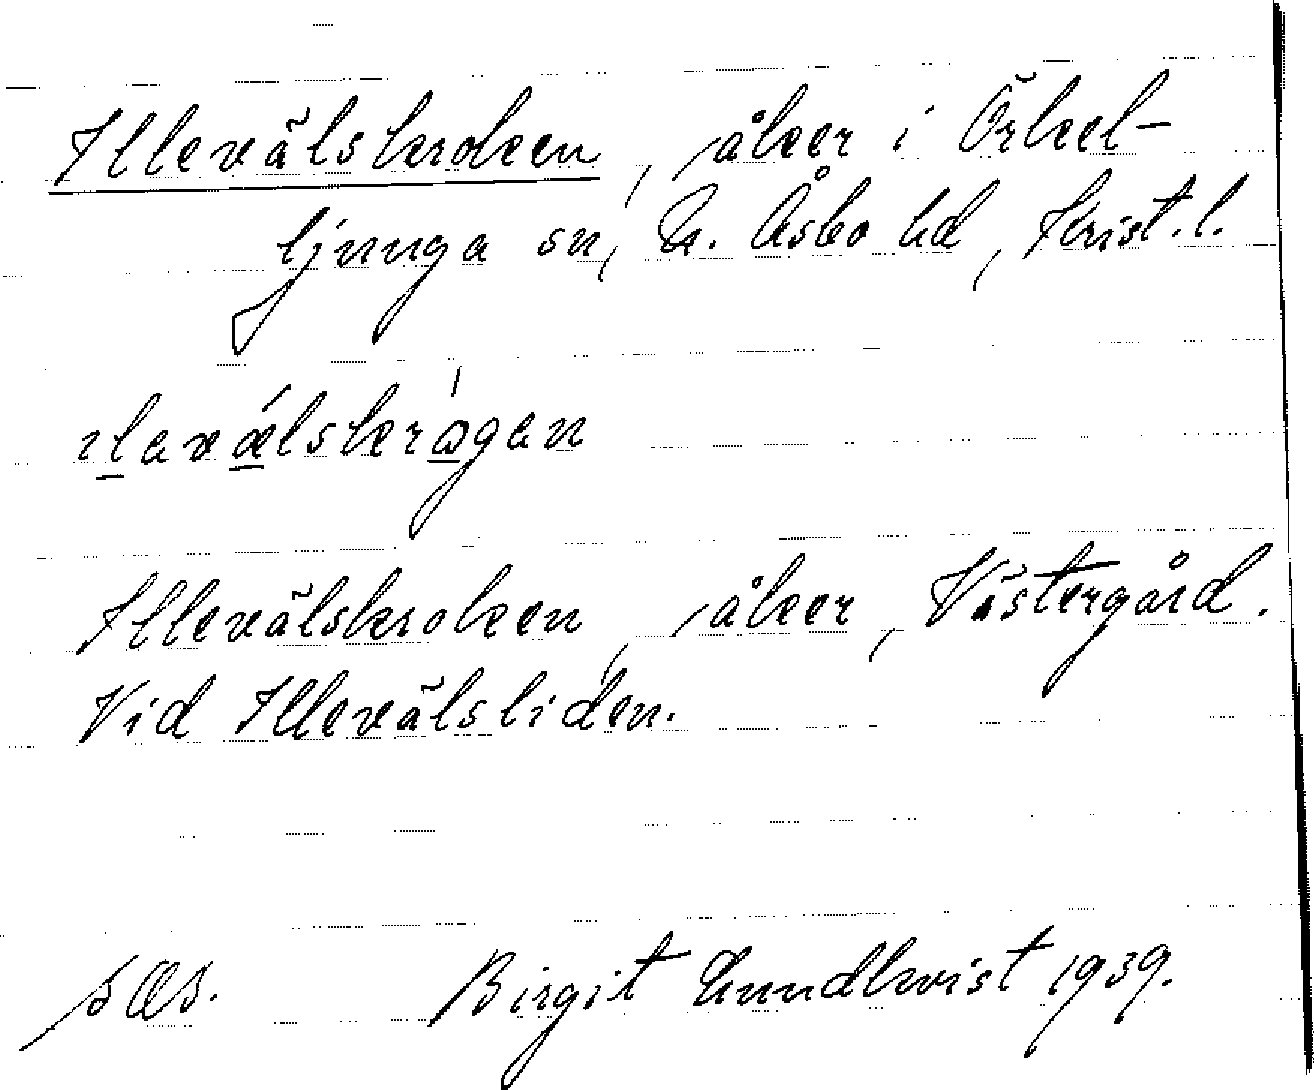 Illevälskroken, åker i Örkel-
ljunga sn, N. Åsbo hd, Krist.l.
ılavälskrågan
Illevälskroken, åker, Västergård.
Vid Illevälsliden.
Birgit Lundkvist 1939.